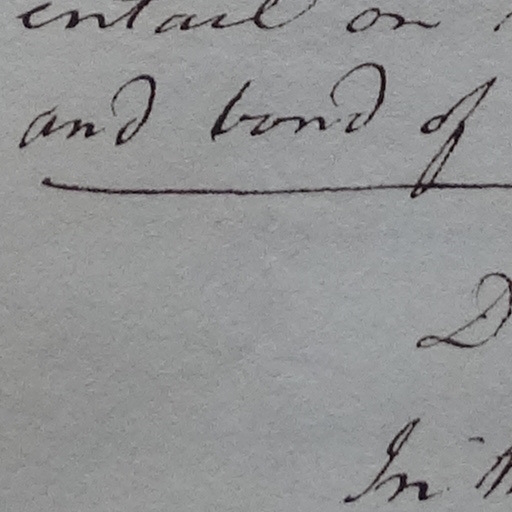 entail on
and bond of
D
In